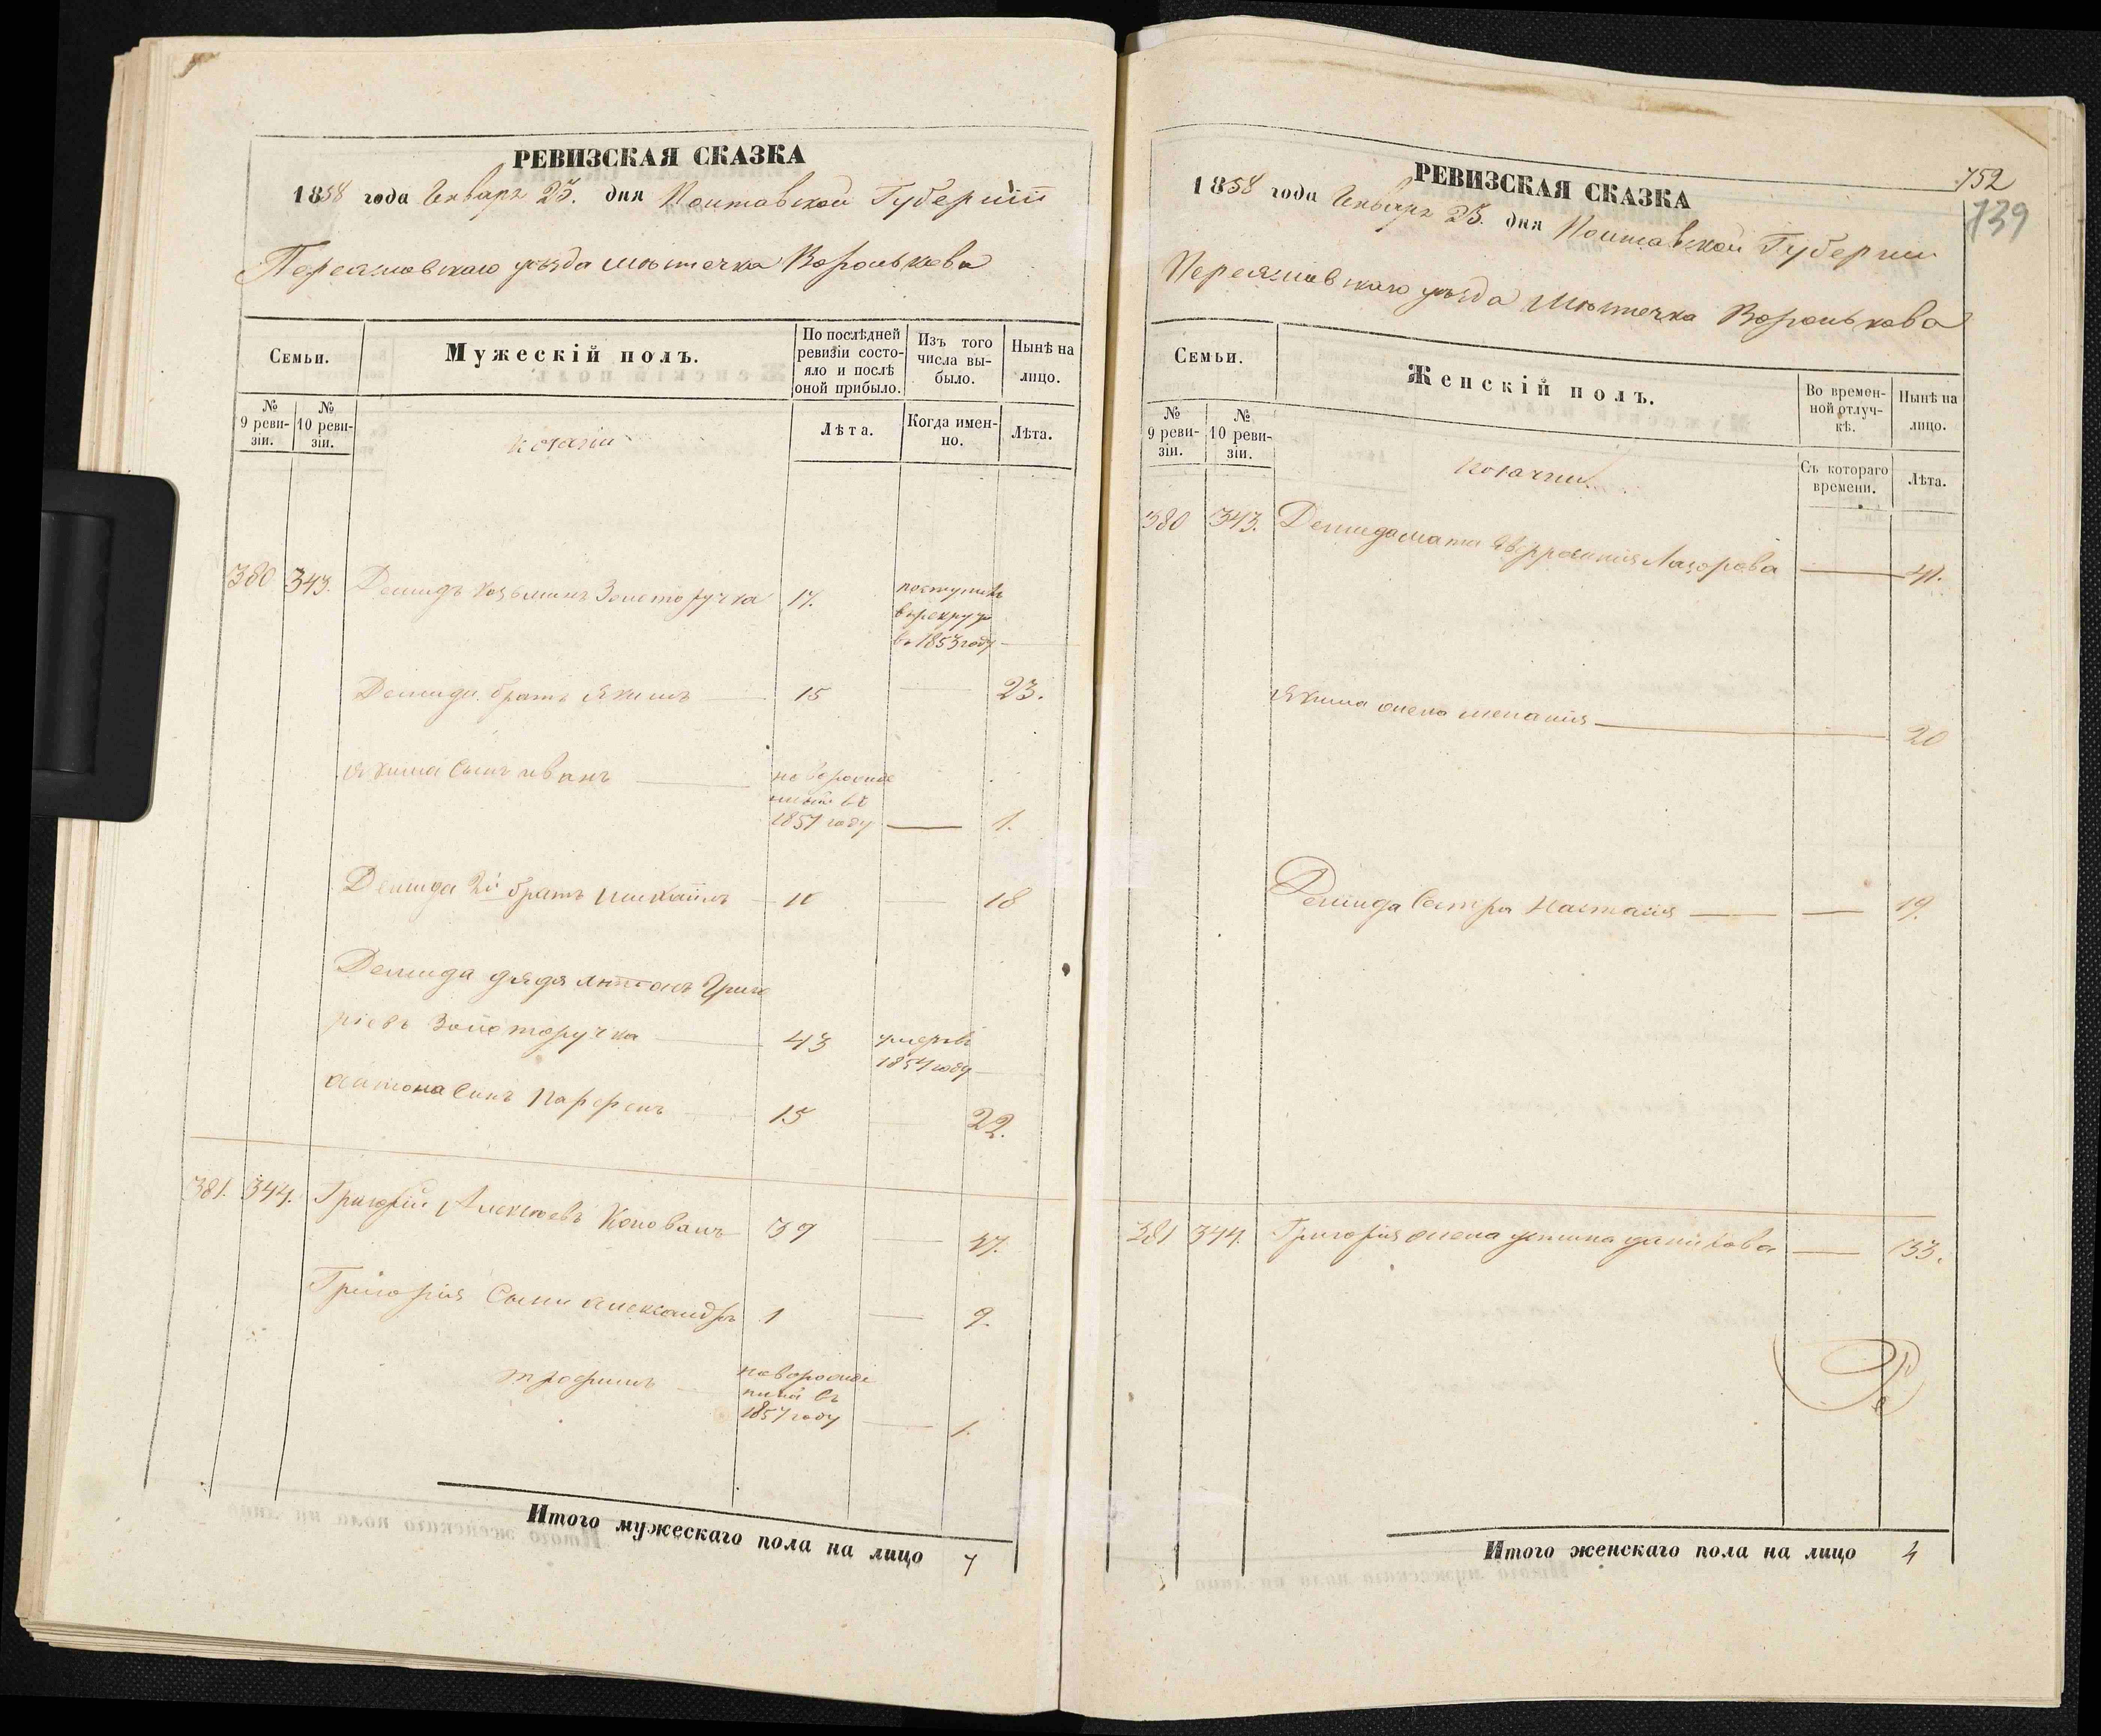 РЕВИЗСКАЯ СКАЗКА
1858 года Генваря 25. дня Полтавской Губерніи
Переяславскаго уѣзда мѣстечка Воронькова
Семьи.
Мужескій полъ.
По послѣдней ревизіи состояло и послѣ оной прибыло.
Изъ того числа выбыло.
Нынѣ на лицо.
№ 9 ревизіи.
№ 10 ревизіи.
козаки
Лѣта.
Когда именно.
Лѣта.
380 343. Демидъ Козьминъ Золоторучка 17. поступилъ
в рекруты
в 1853 году
Демида братъ Якимъ 15 23.
Якима Сынъ иванъ новорожде
нный въ
1857 году 1.
Демида 2й братъ Михаилъ 10 18
Демида дядя Антонъ Григо
ріевъ Золоторучка 43 умерлъ
1854 году
Антона Сынъ Парфенъ 15 22.
381. 344. Григорій Алексѣевъ Коновалъ 39 47.
Григорія Сыни Александръ 1 9.
трофимъ новорожде
нный въ
1857 году 1.
Итого мужескаго пола на лицо 7
752
139
РЕВИЗСКАЯ СКАЗКА
1858 года Генваря 25. дня Полтавской Губерніи
Переяславскаго уѣзда мѣстечка Воронькова
Семьи.
Женскій полъ.
Во временной отлучкѣ.
Нынѣ на лицо.
№ 9 ревизіи.
№ 10 ревизіи.
козачки
Съ котораго времени.
Лѣта.
380 343. Демида мати Лазорова 41.
Якима жена 20
Демида Сестра Настасія 19.
381 344. Григорія жена устина данилова 33.
Итого женскаго пола на лицо 4